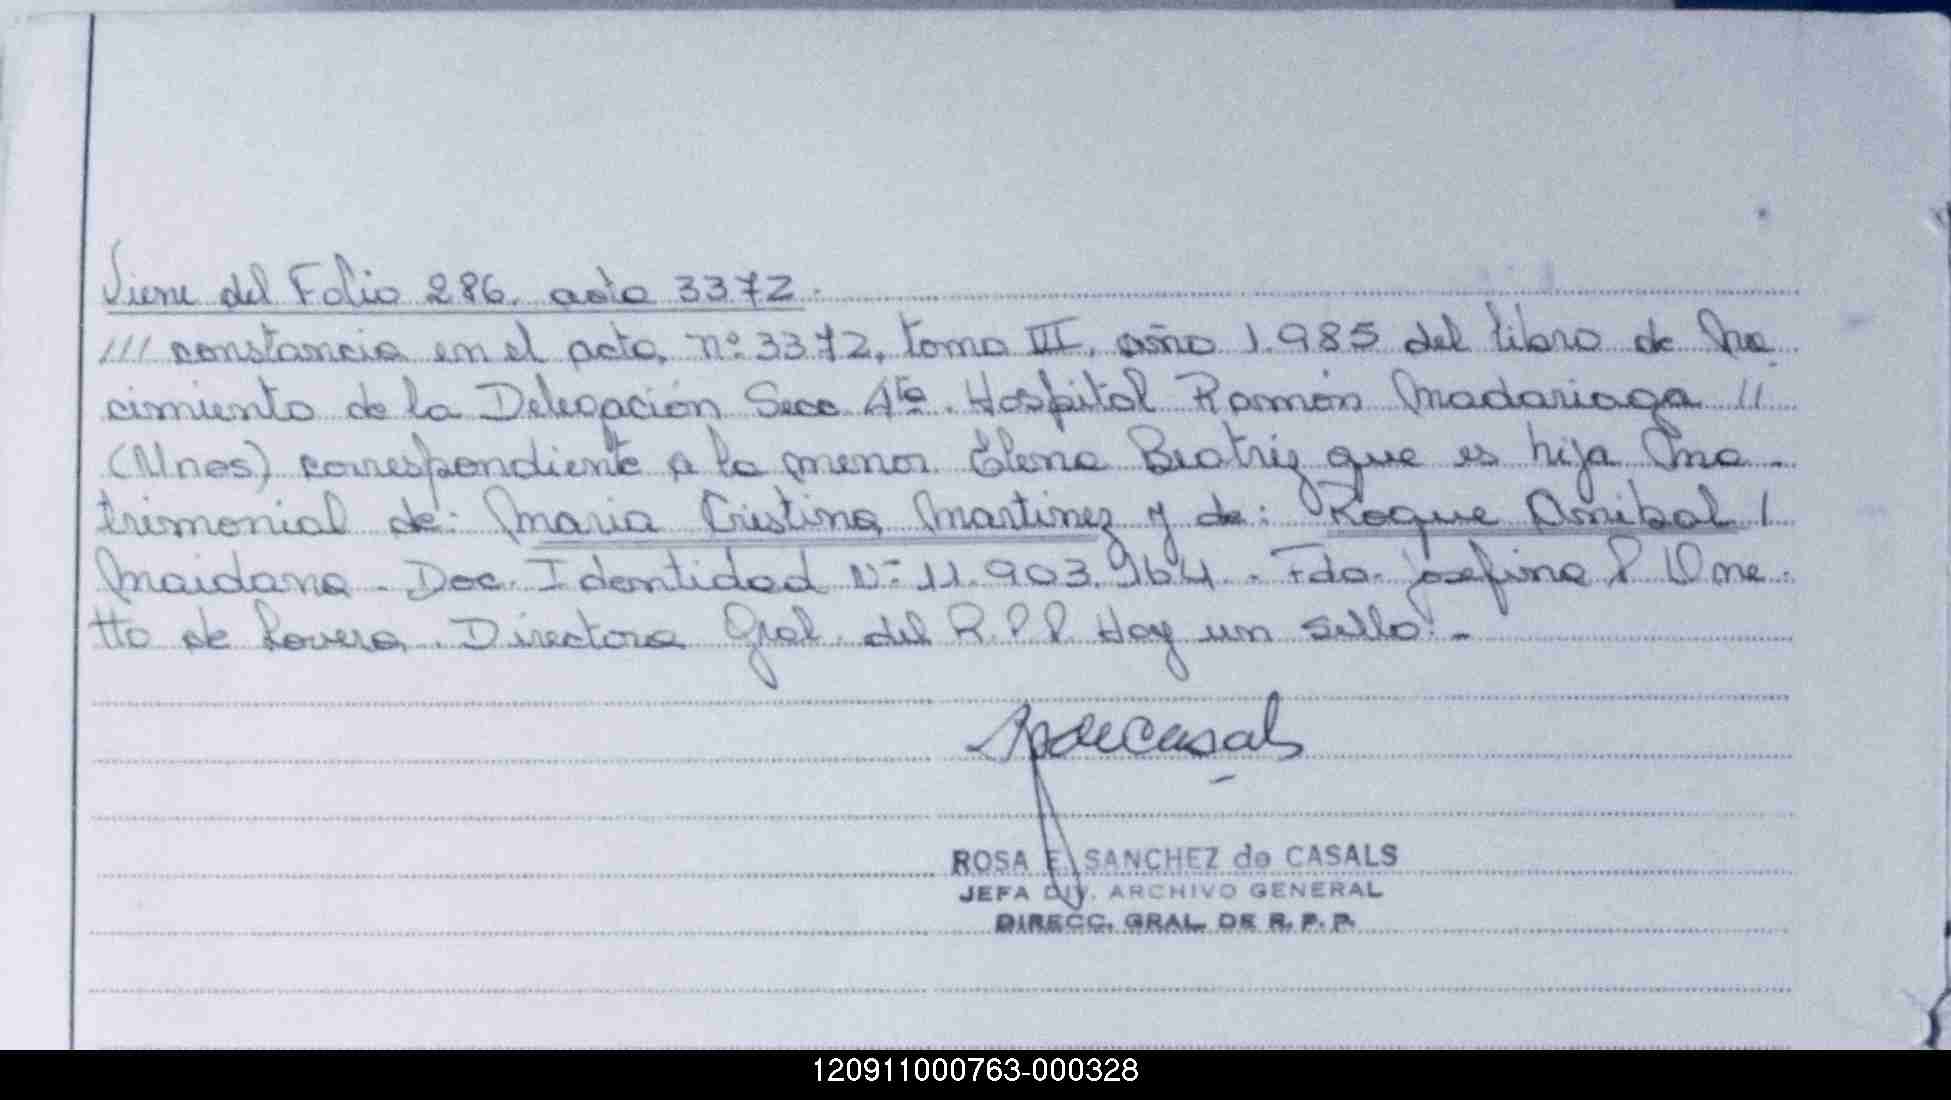 Viene del Folio 286. acta 3372.
/// constancia en el acta, nº 3372, tomo III, año 1.985 del libro de Na
cimiento de la Delegación Secc 4ta. Hospital Ramón Madariaga //
(Mnes) correspondiente a la menor Elena Beatriz que es hija Ma-
trimonial de: Maria Cristina Martinez y de: Roque Anibal /
Maidana - Doc. Identidad Nº 11.903.964. Fdo. Josefina P Ome-
tto de Lovera. Directora Gral. del R.P.P. Hay un sello.-
ROSA E. SANCHEZ de CASALS
JEFA DIV. ARCHIVO GENERAL
DIRECC. GRAL. DE R. P. P.
120911000763-000328